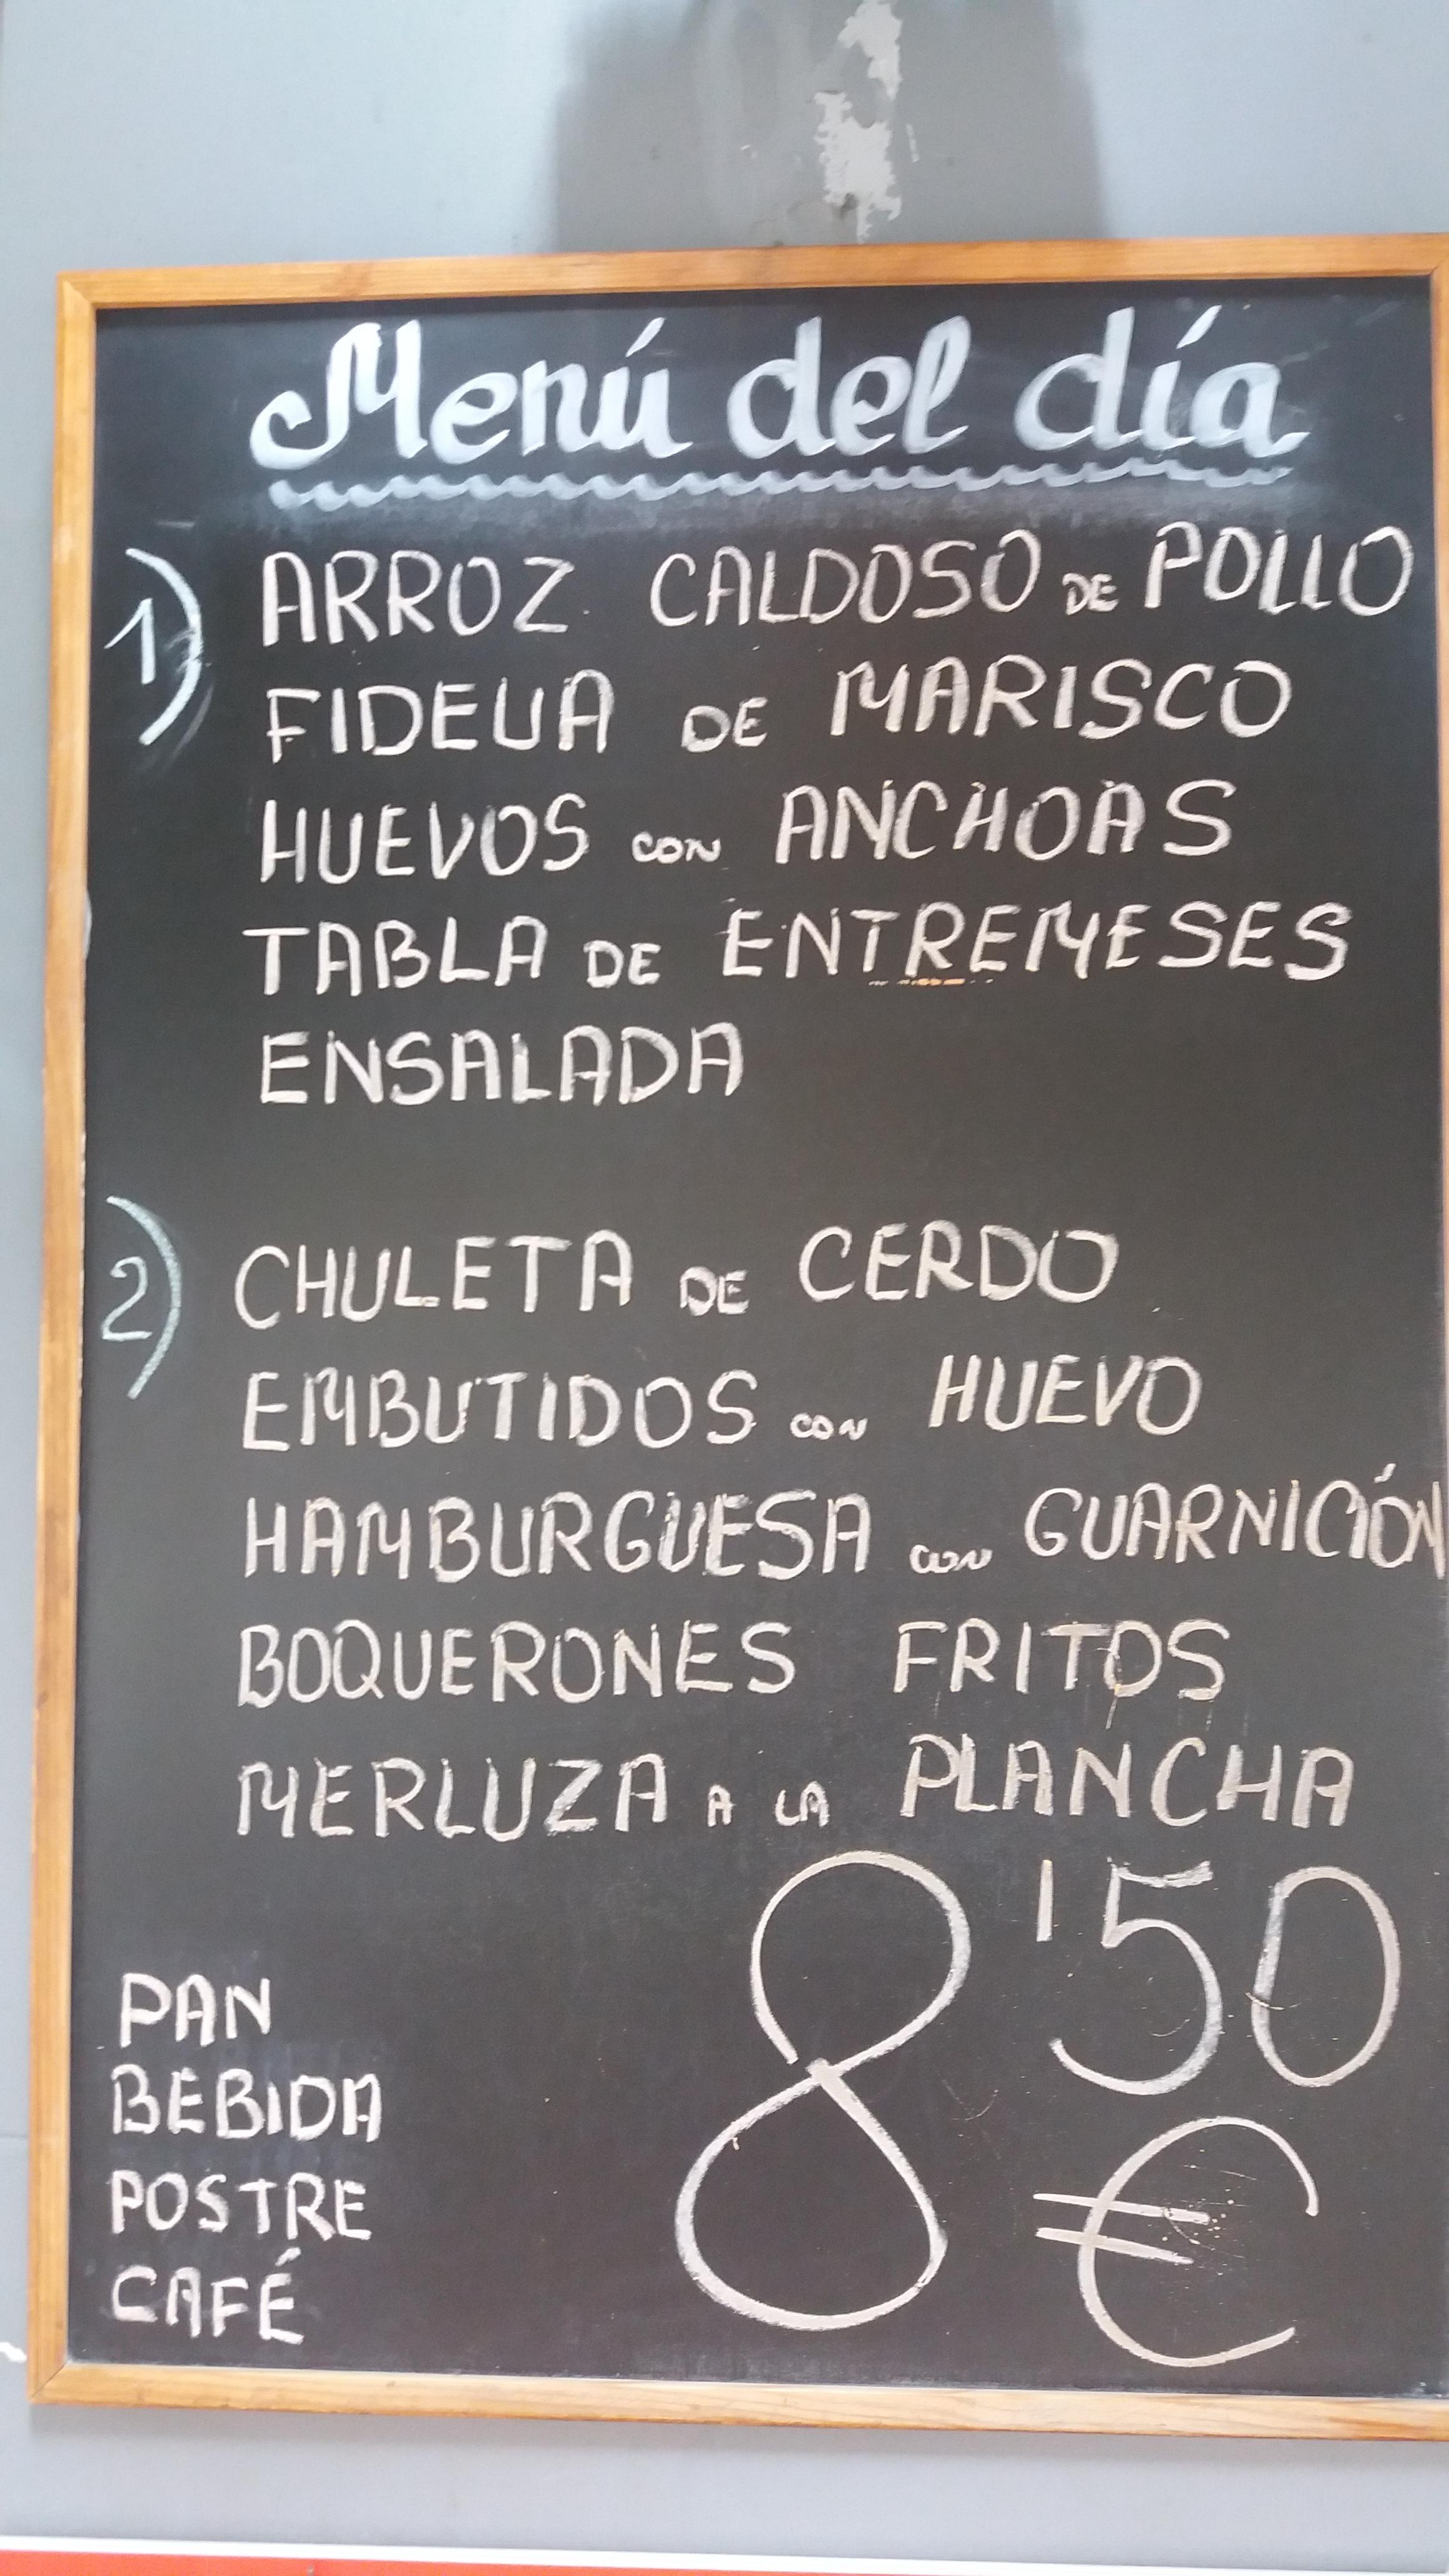 Menú del día
1) ARROZ CALDOSO DE POLLO
FIDEUA DE MARISCO
HUEVOS CON ANCHOAS
TABLA DE ENTREMESES
ENSALADA
2) CHULETA DE CERDO
EMBUTIDOS CON HUEVO
HAMBURGUESA CON GUARNICIÓN
BOQUERONES FRITOS
MERLUZA A LA PLANCHA
8'50 €
PAN
BEBIDA
POSTRE
CAFÉ